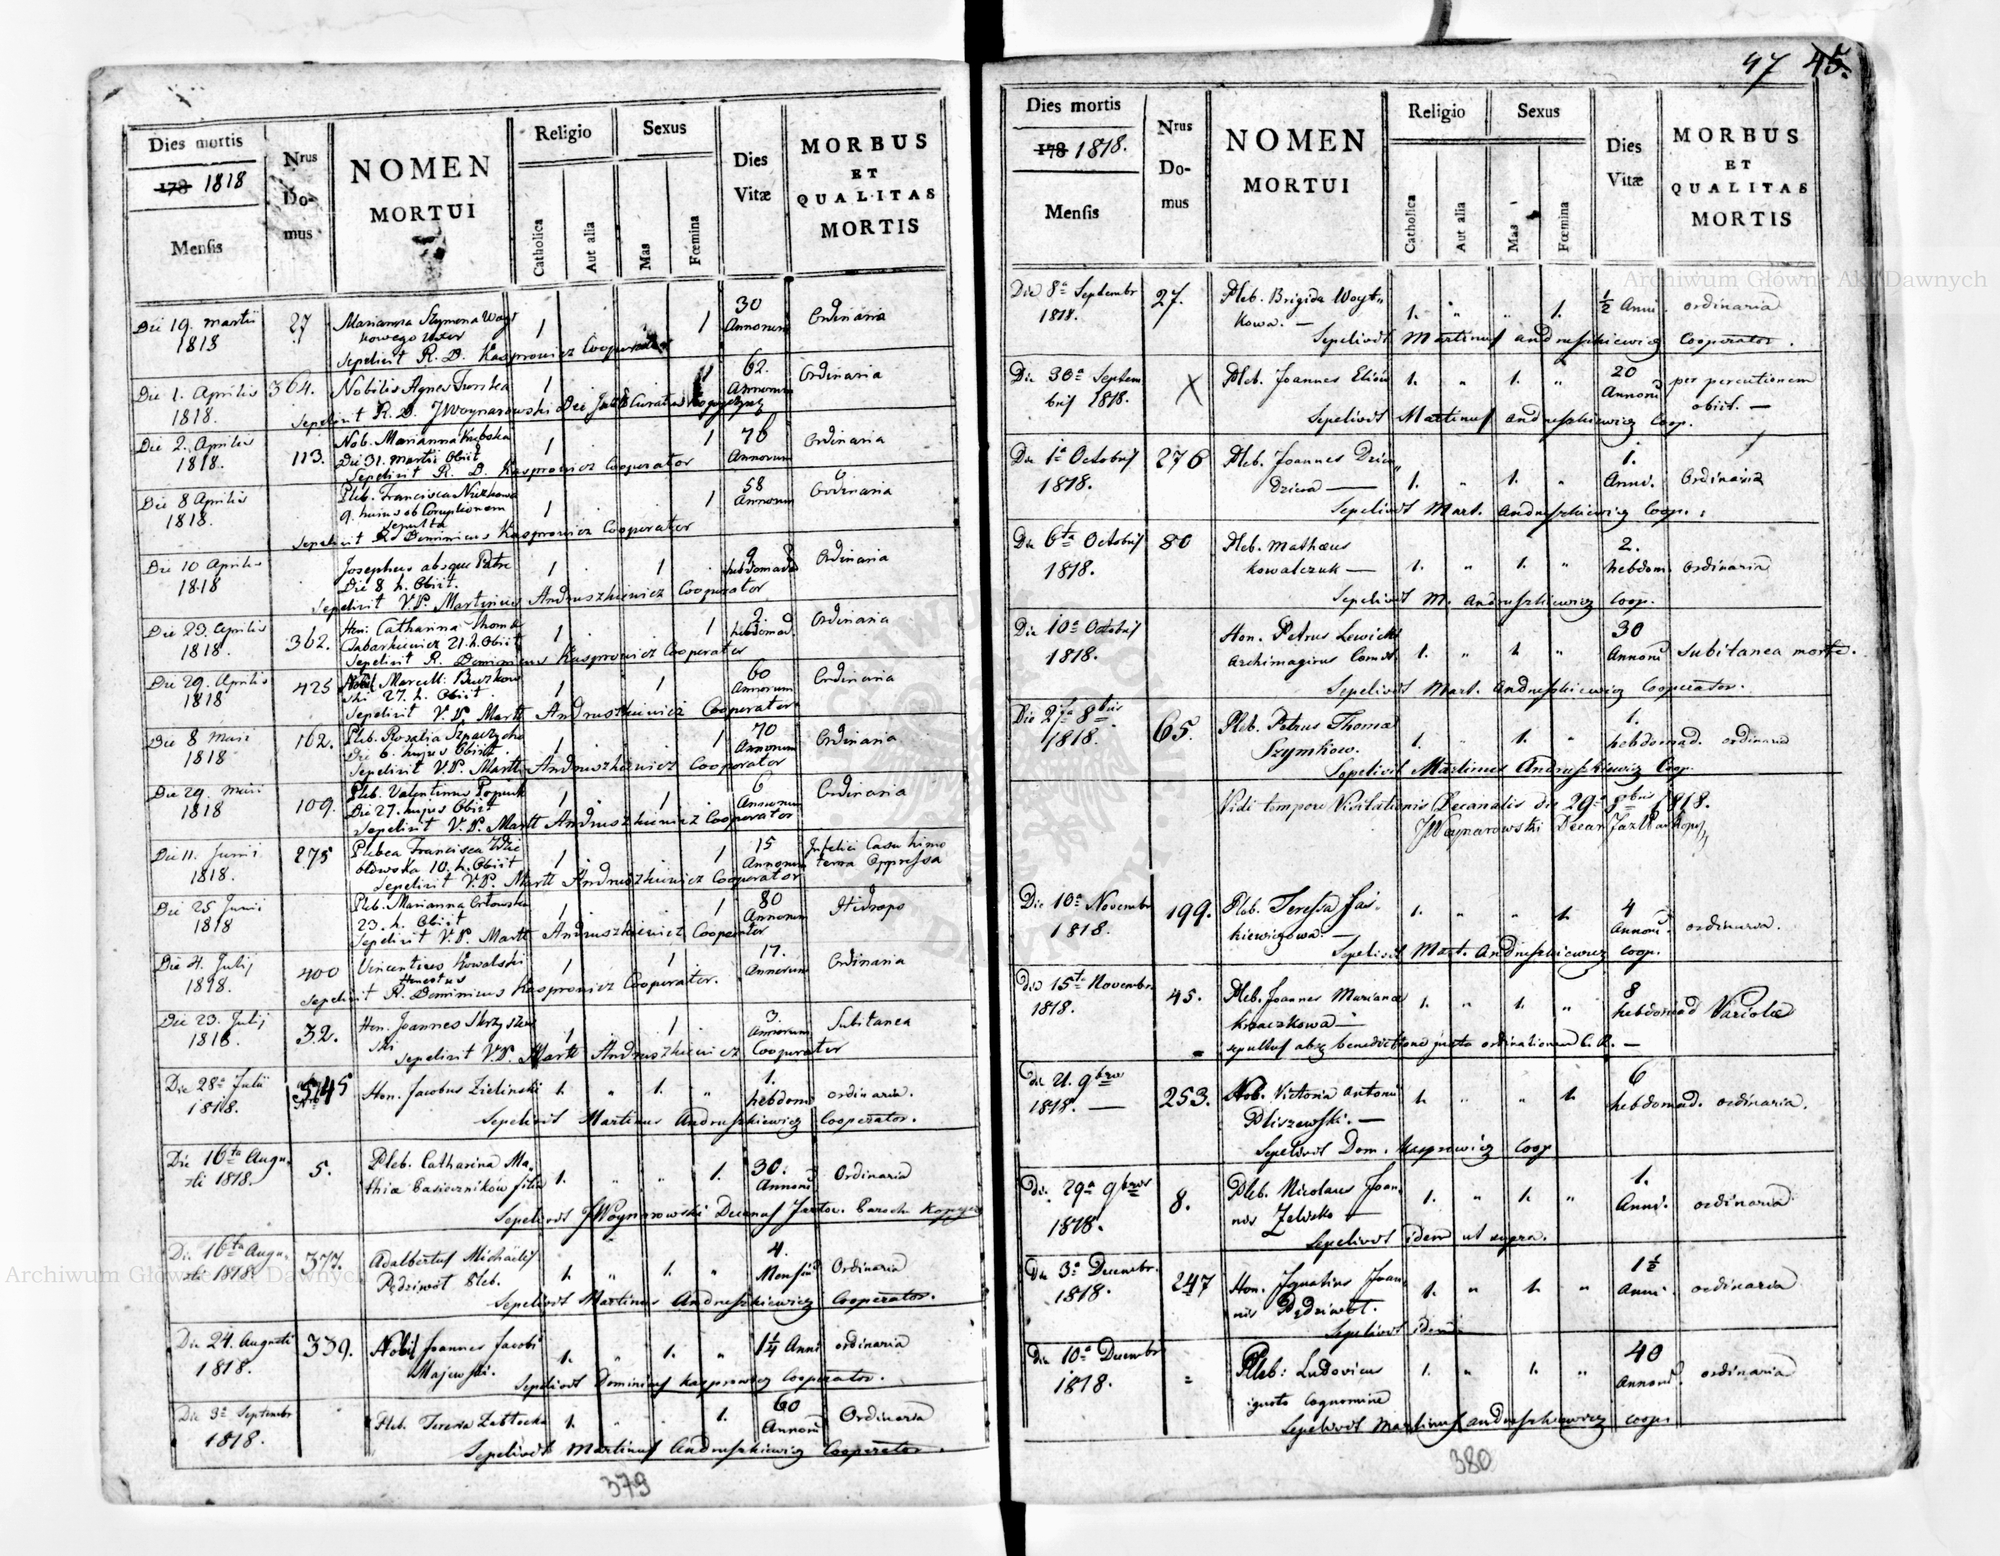 Dies mortis
178 1818
Mensis
Nrus
Do-
mus
NOMEN
MORTUI
Religio
Catholica
Aut alia
Sexus
Mas
Fœmina
Dies
Vitæ
MORBUS
ET
QUALITAS
MORTIS
Die 19. Martii 27 Marianna Szymona Woyt 1 1 30 Ordinaria
1818 kowego Uxor Annorum
Sepelivit R. D. Kasprowicz Cooperator
Die 1. Aprilis 364. Nobilis Agnes 1 62. Ordinaria
1818. Annorum
Sepelivit R. D. JWoynarowski
Die 2. Aprilis 113. Nob. Marianna 1 1 76 Ordinaria
1818. Die 31. Martii Obiit Annorum
Sepelivit R. D. Kasprowicz Cooperator
Die 8 Aprilis Pleb. Francisca 1 1 58 Ordinaria
1818. 9. hujus ob Coruptionem Annorum
sepulta
Sepelivit R. Dominicus Kasprowicz Cooperator
Die 10 Aprilis Josephus absque Patre 1 1 9 Ordinaria
1818 Die 8 h. Obiit. hebdomad
Sepelivit V. P. Martinus Andruszkiewicz Cooperator
Die 23. Aprilis 362. Hon. Catharina Thoma 1 1 2. Ordinaria
1818. 21. h. Obiit hebdomad.
Sepelivit R. Dominicus Kasprowicz Cooperator
Die 29. Aprilis 425 Nobil Marcelli 1 1 60 Ordinaria
1818 ski 27. h. Obiit. Annorum
Sepelivit V. P. Martt Andruszkiewicz Cooperator
Die 8 Maii 162. Pleb. Rosalia 1 1 70 Ordinaria
1818 Die 6. hujus Obiit. Annorum
Sepelivit V. P. Martt Andruszkiewicz Cooperator
Die 29. Maii 109. Pleb. Valentinus Popiuk 1 1 6 Ordinaria
1818 Die 27. hujus Obiit Annorum
Sepelivit V. P. Martt Andruszkiewicz Cooperator
Die 11. Junii 275 Plebea Francisca 1 1 15 Infelici Casu
1818. 10. h. Obiit Annorum terra Oppressa
Sepelivit V. P. Martt Andruszkiewicz Cooperator
Die 25 Junii Pleb. Marianna Orłowska 1 1 80 Hidrops
1818 23. h. Obiit Annorum
Sepelivit V. P. Martt Andruszkiewicz Cooperator
Die 4. Julij 400 Vincentius Kowalski 1 1 17. Ordinaria
1818. Honestus Annorum
Sepelivit R. Dominicus Kasprowicz Cooperator.
Die 23. Julij 32. Hon. Joannes Skrzyszew 1 1 3. Subitanea
1818. ski Annorum
Sepelivit V. P. Martt Andruszkiewicz Cooperator
Die 28a Julii Hon. Jacobus Zielinski 1. " 1. " 1. ordinaria.
1818. hebdom
Sepelivit Martinus Andruszkiewicz Cooperator.
Die 16ta Augu- 5. Pleb. Catharina Ma- 1. " " 1. 30. Ordinaria
sti 1818. thiæ filia Annorũ
Sepelivit JWoynarowski Decanus
Die 16ta Augu- 377. Adalbertus Michaëlis 1. " 1. " 4. Ordinaria
sti 1818. Pędziwiat Pleb. Mensiũ
Sepelivit Martinus Andruszkiewicz Cooperator.
Die 24. Augusti 339. Nobil Joannes Jacobi 1. " 1. " 1¼ Anni ordinaria
1818. Majewski.
Sepelivit Dominicus Kasprowicz Cooperator.
Die 3a Septembr Pleb. Teresa Zabłocka 1. " " 1. 60 Ordinaria
1818. Annorũ
Sepelivit Martinus Andruszkiewicz Cooperator.
379
47 45.
Dies mortis
178 1818.
Mensis
Nrus
Do-
mus
NOMEN
MORTUI
Religio
Catholica
Aut alia
Sexus
Mas
Fœmina
Dies
Vitæ
MORBUS
ET
QUALITAS
MORTIS
Die 8a Septembr 27. Pleb. Brigida Woyt„ 1. " " 1. ½ Anni. ordinaria
1818. kowa. —
Sepelivit Martinus Andruszkiewicz Cooperator.
Die 30a Septem X Pleb. Joannes 1. " 1. " 20 per percutionem
bris 1818. Annorũ obiit. —
Sepelivit Martinus Andruszkiewicz Coop.
Die 1a Octobris 276 Pleb. Joannes 1. " 1. " 1. Ordinaria
1818. Anni.
Sepelivit Mart. Andruszkiewicz Coop.
Die 6ta Octobris 80 Pleb. Mathæus 1. " 1. " 2. ordinaria
1818. Kowalczuk — hebdom.
Sepelivit M. Andruszkiewicz Coop.
Die 10a Octobris Hon. Petrus Lewicki 1. " 1. " 30 Subitanea morte.
1818. Archimagirus Annorũ
Sepelivit Mart. Andruszkiewicz Cooperator.
Die 27a 8bris 65. Pleb. Petrus Thoma 1. " 1. " 1. ordinaria
1818. Szymkow. hebdomad.
Sepelivit Martinus Andruszkiewicz Coop.
Vidi tempore Visitationis Decanalis die 29a 8bris 1818.
JWoynarowski Decan
Die 10a Novembr 199. Pleb. Teressa Jas- 1. " " 1. 4 ordinaria.
1818. kiewiczowa. — Annorũ.
Sepelivit Mart. Andruszkiewicz coop.
Die 15ta Novembr. 45. Pleb. Joannes Marianæ 1. " 1. " 8 Variolæ
1818. Kozaczkowa — hebdomad
sepultus absq benedictione juxta ordinationem C. R. —
Die 21. 9bris 253. Nob. Victoria Antonii 1. " " 1. 6 ordinaria.
1818. — Pliszewski. — hebdomad.
Sepelivit Dom. Kasprowicz Coop
Die 29a 9bris 8. Pleb. Nicolaus Joan- 1. " 1. " 1. ordinaria
1818. nis — Anni.
Sepelivit idem ut supra.
Die 3a Decembr. 247 Hon. Ignatius Joan- 1. " 1. " 1½ ordinaria
1818. nis Pędziwiat. Anni
Sepelivit idem
Die 10a Decembr Pleb: Ludovicus 1. " 1. " 40 ordinaria
1818. ignoto Cognomine Annorũ.
Sepelivit Martinus Andruszkiewicz coop:
380
Archiwum Główne Akt Dawnych
Archiwum Główne Akt Dawnych